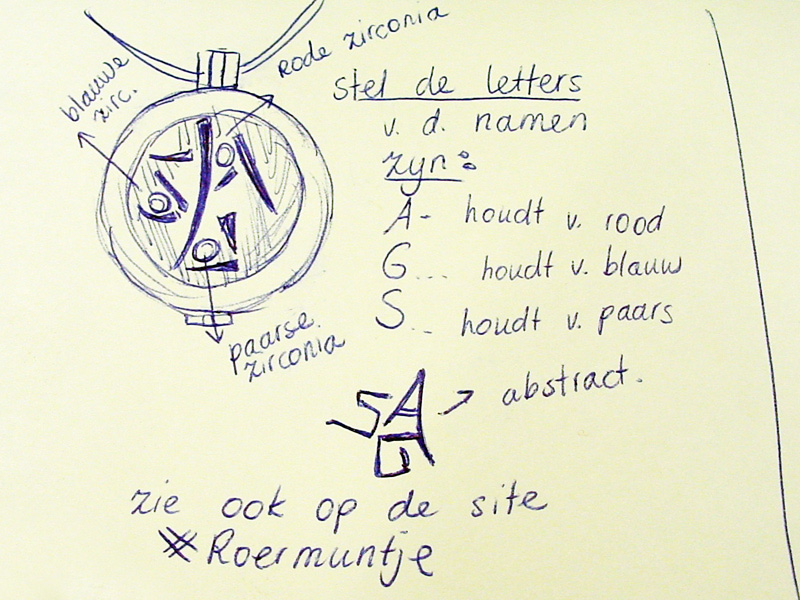 rode zirconia
blauwe
zirc.
stel de letters
v. d. namen
zyn:
A- houdt v. rood
G... houdt v. blauw
S... houdt v. paars
paarse
zirconia
SA
G
abstract.
zie ook op de site
Roermuntje